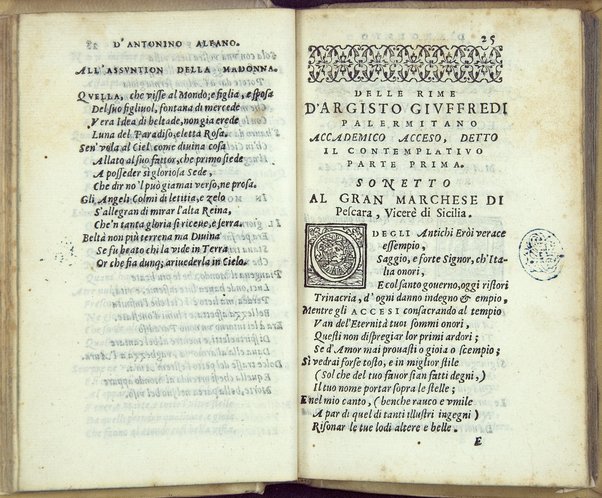 D'ANTONINO ALFANO.
ALL'ASSVNTION DELLA MADONNA.
QVELLA, che visse al Mondo, e figlia, e sposa
Del suo figliuol, fontana di mercede
Vera Idea di beltade, non già erede
Luna del Paradiso, eletta Rosa.
Sen' vola al Ciel come diuina cosa
Allato al suo fattor, che primo siede
A posseder sì gloriosa Sede,
Che dir no'l può già mai verso, ne prosa.
Gli Angeli Colmi di letitia, e zelo
S'allegran di mirar l'alta Reina,
Che'n tanta gloria si riceue, e serra.
Beltà non più terrena ma Diuina
Se fu beato chi la vide in Terra
Or che fia dunq; a riuederla in Cielo.
25
DELLE RIME
D'ARGISTO GIVFFREDI
PALERMITANO
ACCADEMICO ACCESO, DETTO
IL CONTEMPLATIVO
PARTE PRIMA.
SONETTO
AL GRAN MARCHESE DI
Pescara, Vicerè di Sicilia.
O DEGLI Antichi Eròi verace
essempio,
Saggio, e forte Signor, ch'Ita
lia onori,
E col santo gouerno, oggi ristori
Trinacria, d'ogni danno indegno & empio,
Mentre gli ACCESI consacrando al tempio
Van de l'Eternità tuoi sommi onori,
Questi non dispregiar lor primi ardori;
Se d'Amor mai prouasti o gioia o scempio;
Sì vedrai forse tosto, e in miglior stile
(Sol che del tuo fauor sian fatti degni,)
Il tuo nome portar sopra le stelle;
E nel mio canto, (benche rauco e vmile
A par di quel di tanti illustri ingegni)
Risonar le tue lodi altere e belle.
E